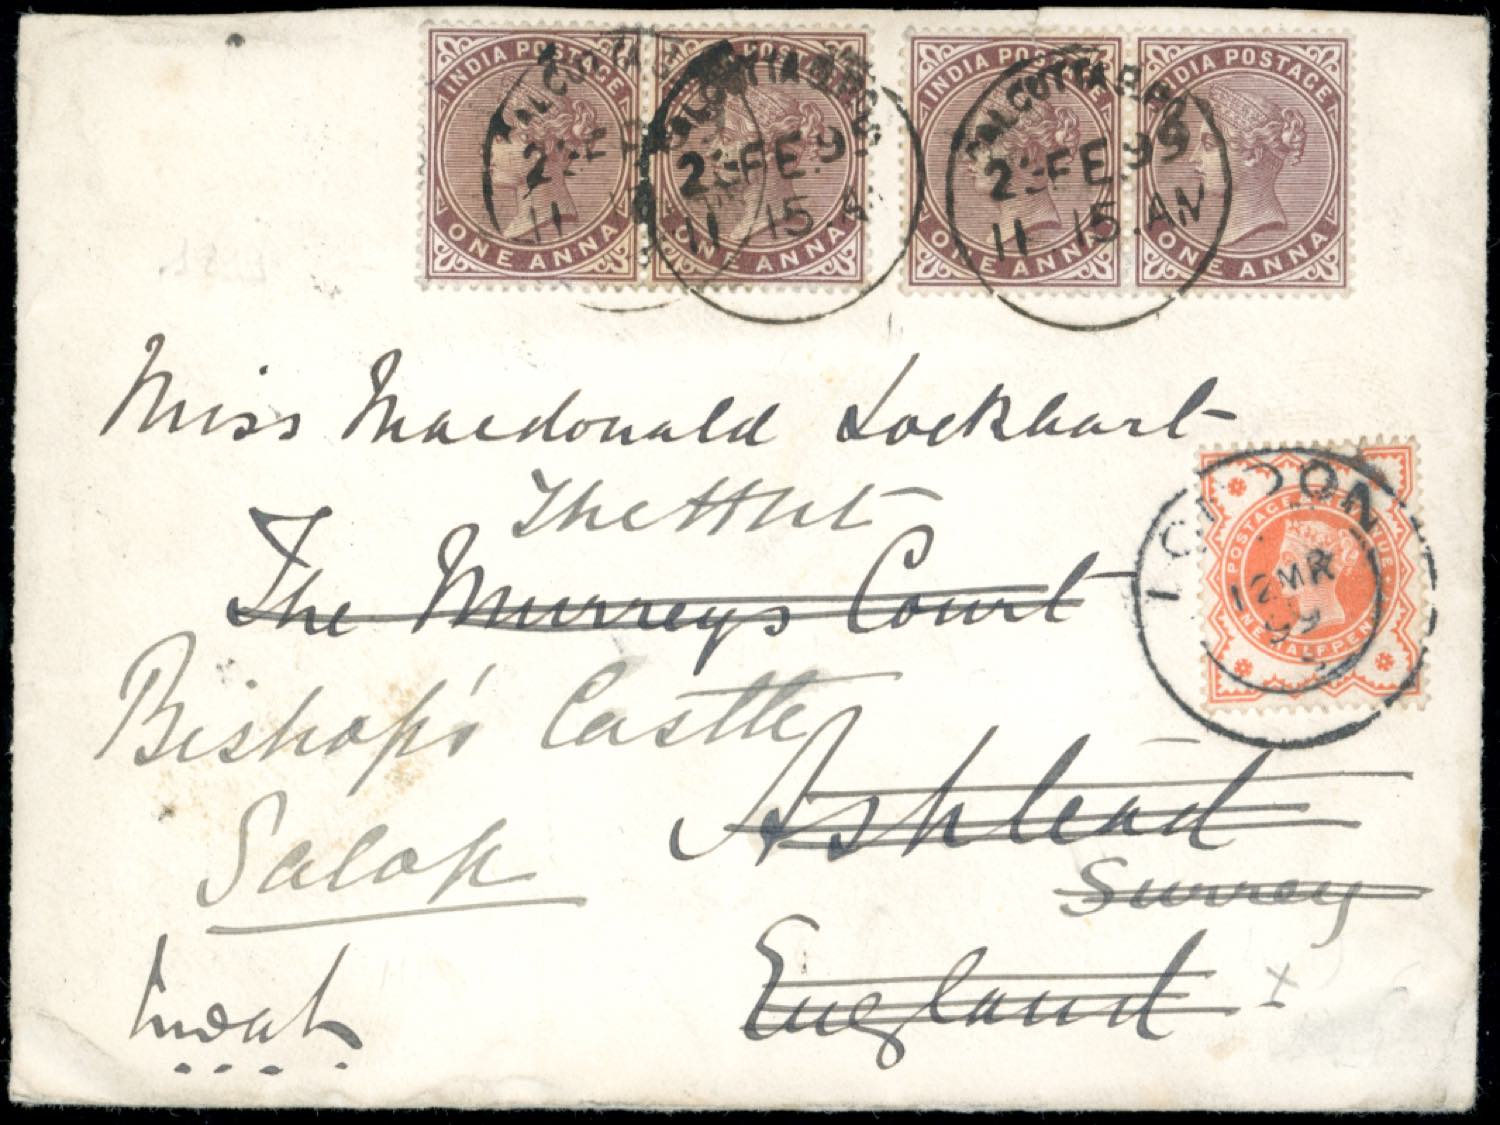 INDIA POSTAGE INDIA POSTAGE INDIA POSTAGE INDIA POSTAGE
CALCUTTA CALCUTTA G.P.O. CALCUTTA G.P.O.
FE FE.9 FE.99
11 11 15 A 11 15.AM
ONE ANNA ONE ANNA ONE ANNA ONE ANNA
Miss Macdonald Lockhart
The Hut
The Murreys Court
LONDON
POSTAGE & REVENUE
12 MR
99
ONE HALFPENNY
Bishop's Castle
Ashtead
Salop
Surrey
England